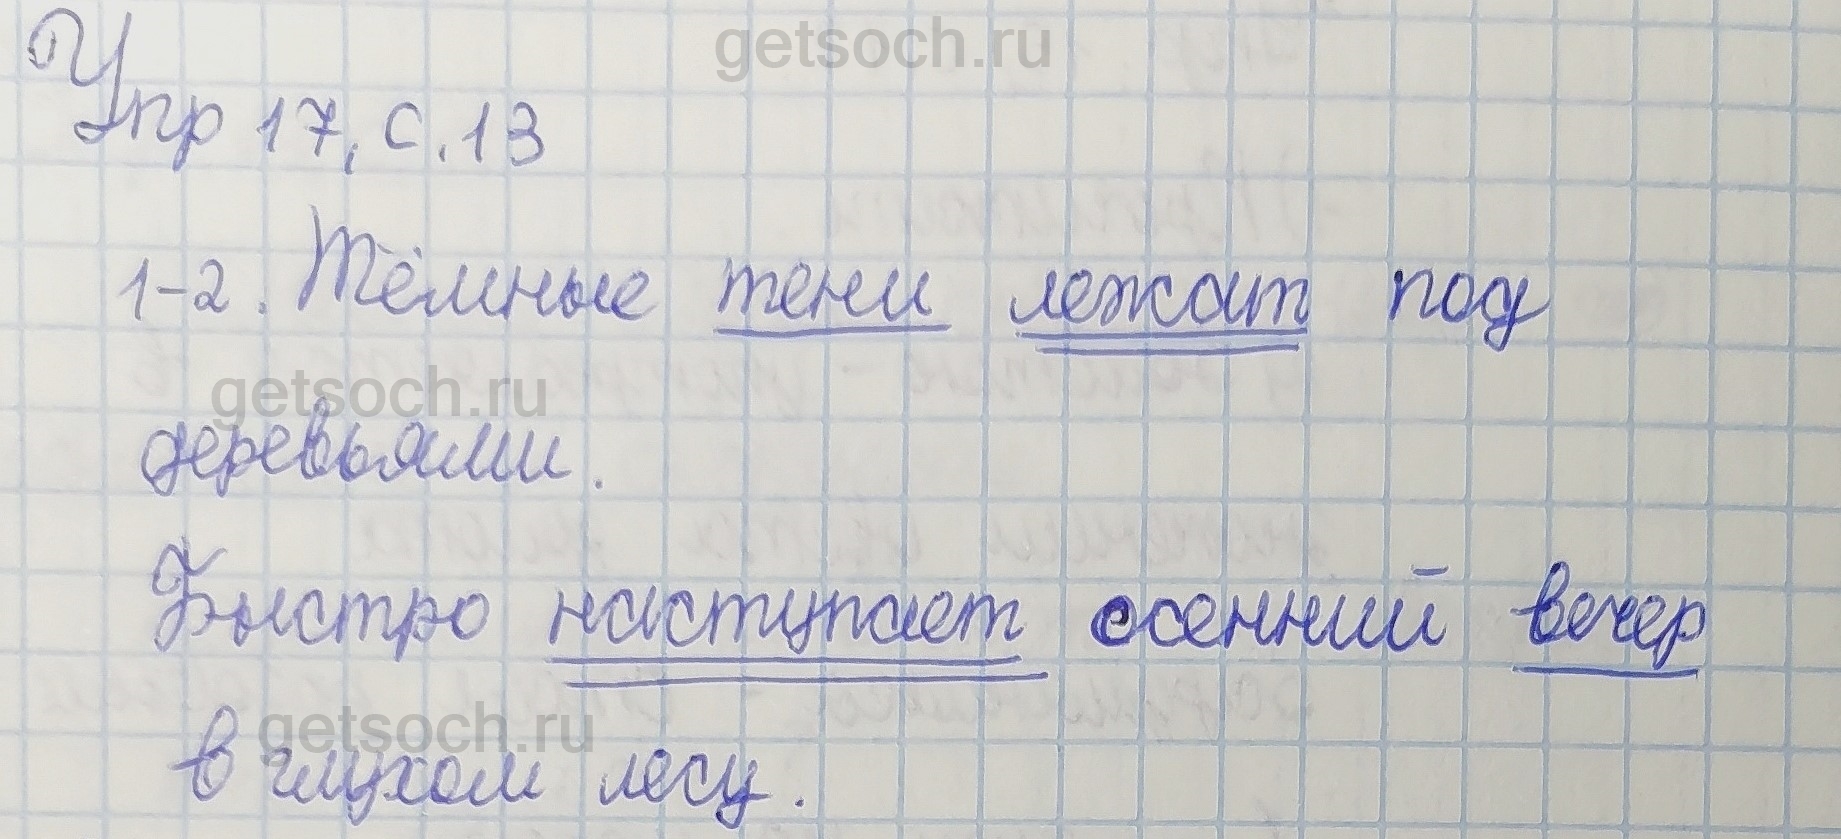 getsoch.ru
Упр 17, с. 13
1-2. Тёмные тени лежат под
getsoch.ru
деревьями.
Быстро наступает осенний вечер
getsoch.ru
в глухом лесу.